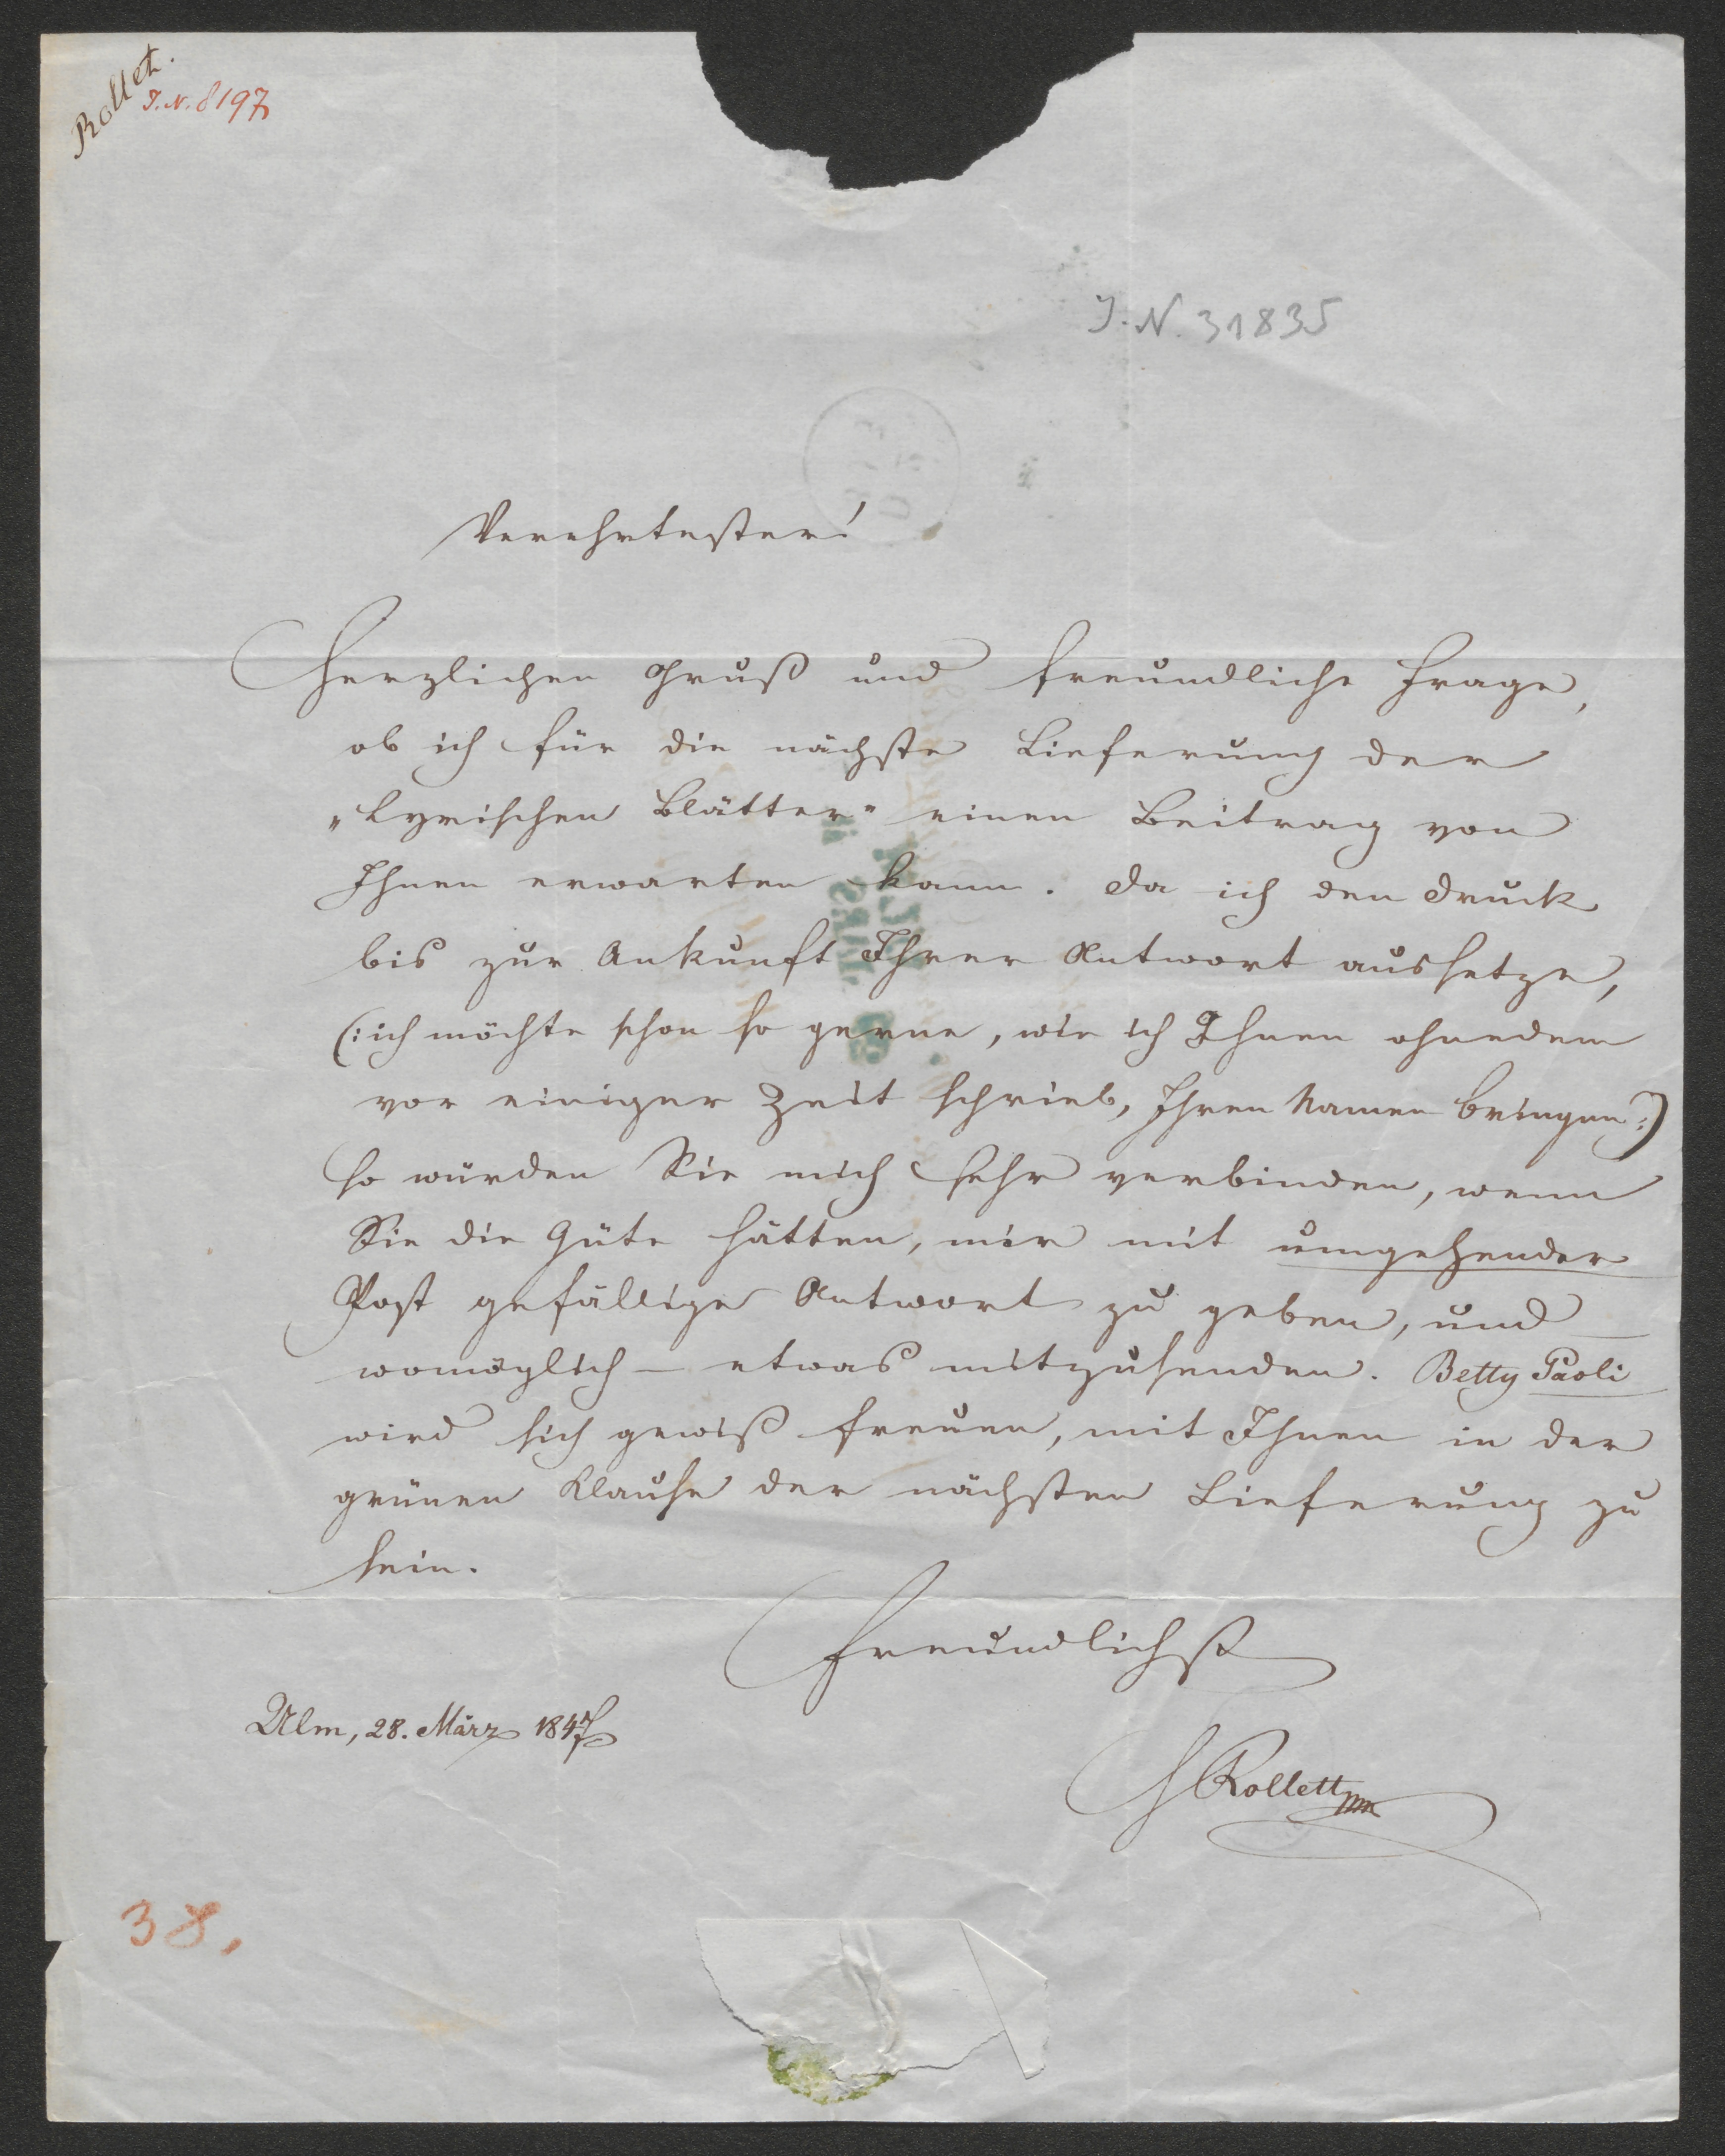 Rollet.
I.N. 8197
I.N. 31835
Verehrtester!
Herzlichen Gruß und freundliche Frage,
ob ich für die nächste Lieferung der
„Lyrischen Blätter" einen Beitrag von
Ihnen erwarten kann. Da ich den Druck
bis zur Ankunft Ihrer Antwort aussetze,
(: ich möchte schon so gerne, wie ich Ihnen ohnedem
vor einiger Zeit schrieb, Ihren Namen bringen :)
so würden Sie mich sehr verbinden, wenn
Sie die Güte hätten, mir mit umgehender
Post gefällige Antwort zu geben, und –
womöglich – etwas mitzusenden. Betty Paoli
wird sich gewiß freuen, mit Ihnen in der
grünen Klause der nächsten Lieferung zu
sein.
Freundlichst
Ulm, 28. März 1847
HRollett
38.